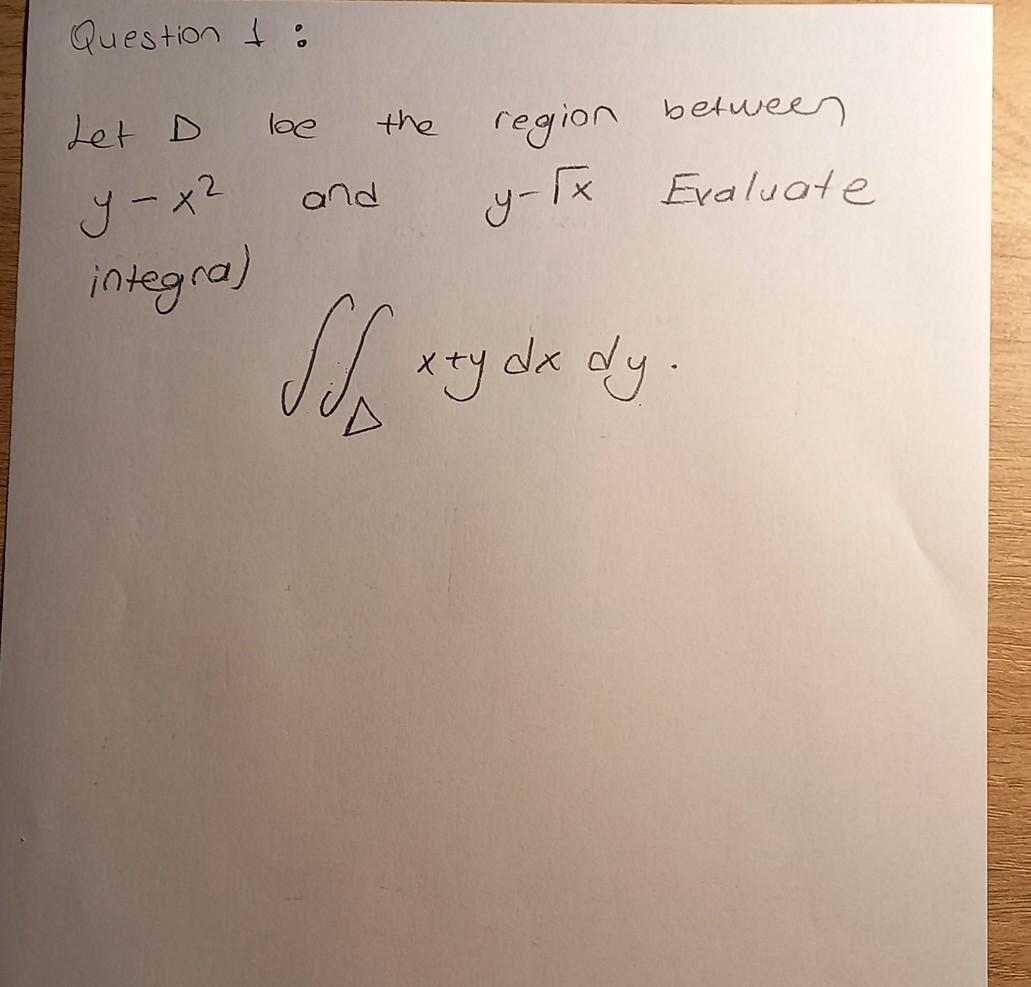 Question 1 :
Let D be the region between
y - x² and y - √x Evaluate
integral
∬_D x+y dx dy.